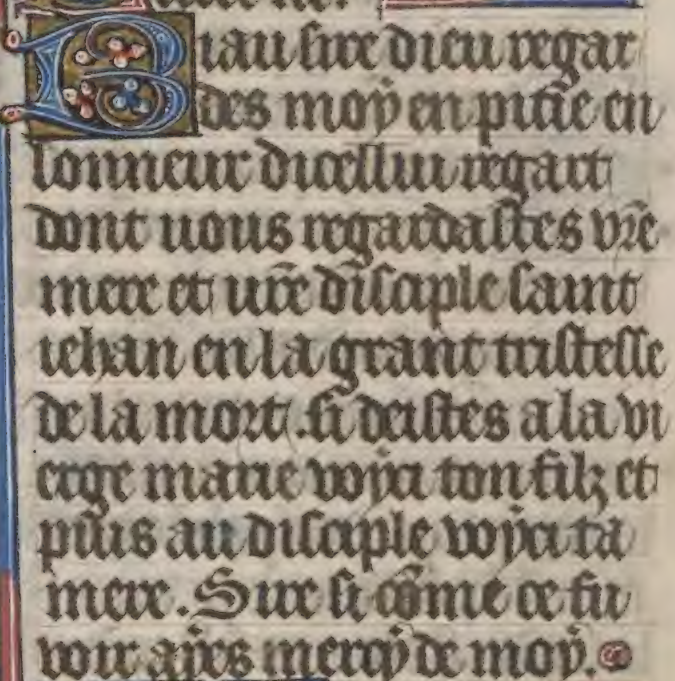 Biau sire dieu regar
des moy en pitie en
lonneur dicellui regart
dont uous regardastes vr̃e
mere et ur̃e disciple saint
iehan en la grant tristesse
de la mort. si deistes a la vi
erge marie voyci ton filz et
puis au disciple voyci ta
mere. Sire si cõme ce fu
voir ayes mercy de moy.